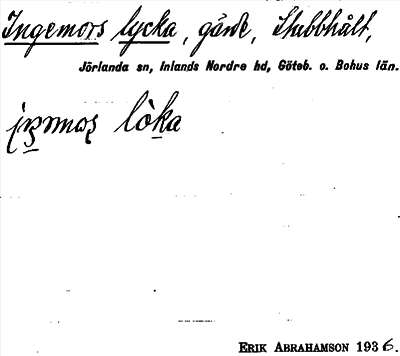 Ingemors lycka, gärde, Stubbhält,
Jörlanda sn, Inlands Nordre hd, Göteb. o. Bohus län.
lò̀ka
ERIK ABRAHAMSON 1936.